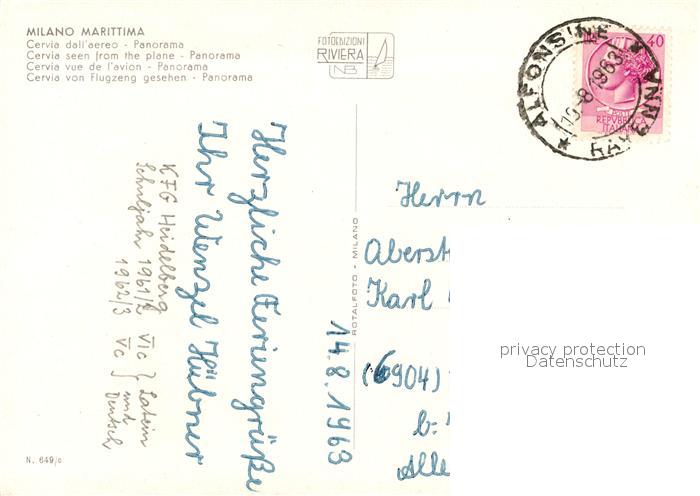 MILANO MARITTIMA
Cervia dall'aereo - Panorama
Cervia seen from the plane - Panorama
Cervia vue de l'avion - Panorama
Cervia von Flugzeng gesehen - Panorama
FOTOEDIZIONI
RIVIERA
NB
ALFONSINE * RAVENNA *
8.1963
40
REPVBBLICA
ITALIANA
Herzliche Feriengrüße
Ihr Wenzel Hübner
KFG Heidelberg
Schuljahr 1961/2 VIc } Latein
1962/3 Vc } und
Deutsch
14.8.1963
ROTALFOTO - MILANO
Herrn
Aberst
Karl
(6904)
b:
Alle
privacy protection
Datenschutz
N. 649/c